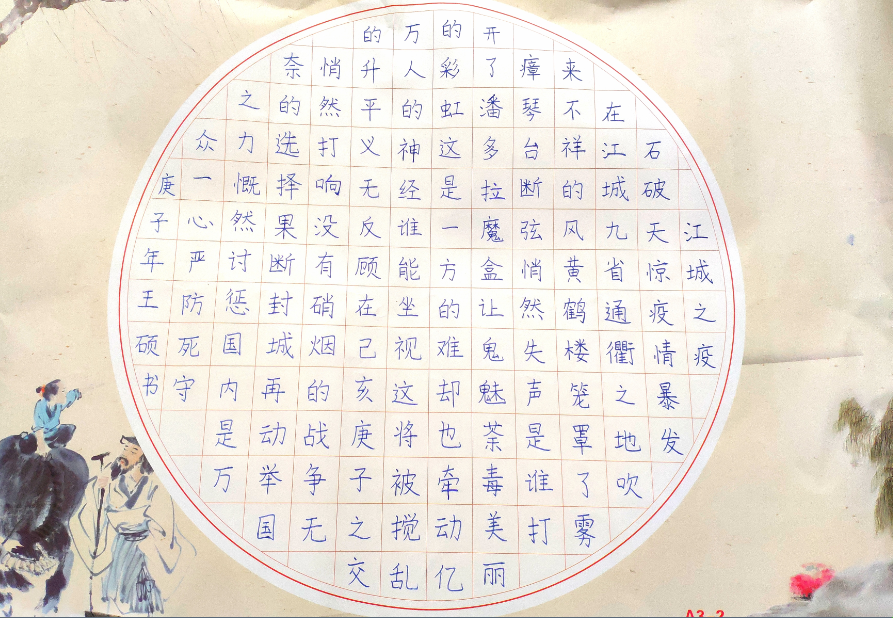 江城之疫
石破天惊疫情暴发
在江城九省通衢之地吹
来不祥的风黄鹤楼笼罩了雾
瘴琴台断弦悄然失声是谁打
开了潘多拉魔盒让鬼魅荼毒美丽
的彩虹这是一方的难却也牵动亿
万人的神经谁能坐视这将被搅乱
的升平义无反顾在己亥庚子之交
悄然打响没有硝烟的战争无
奈的选择果断封城再动举国
之力慨然讨惩国内是万
众一心严防死守
庚子年王硕书